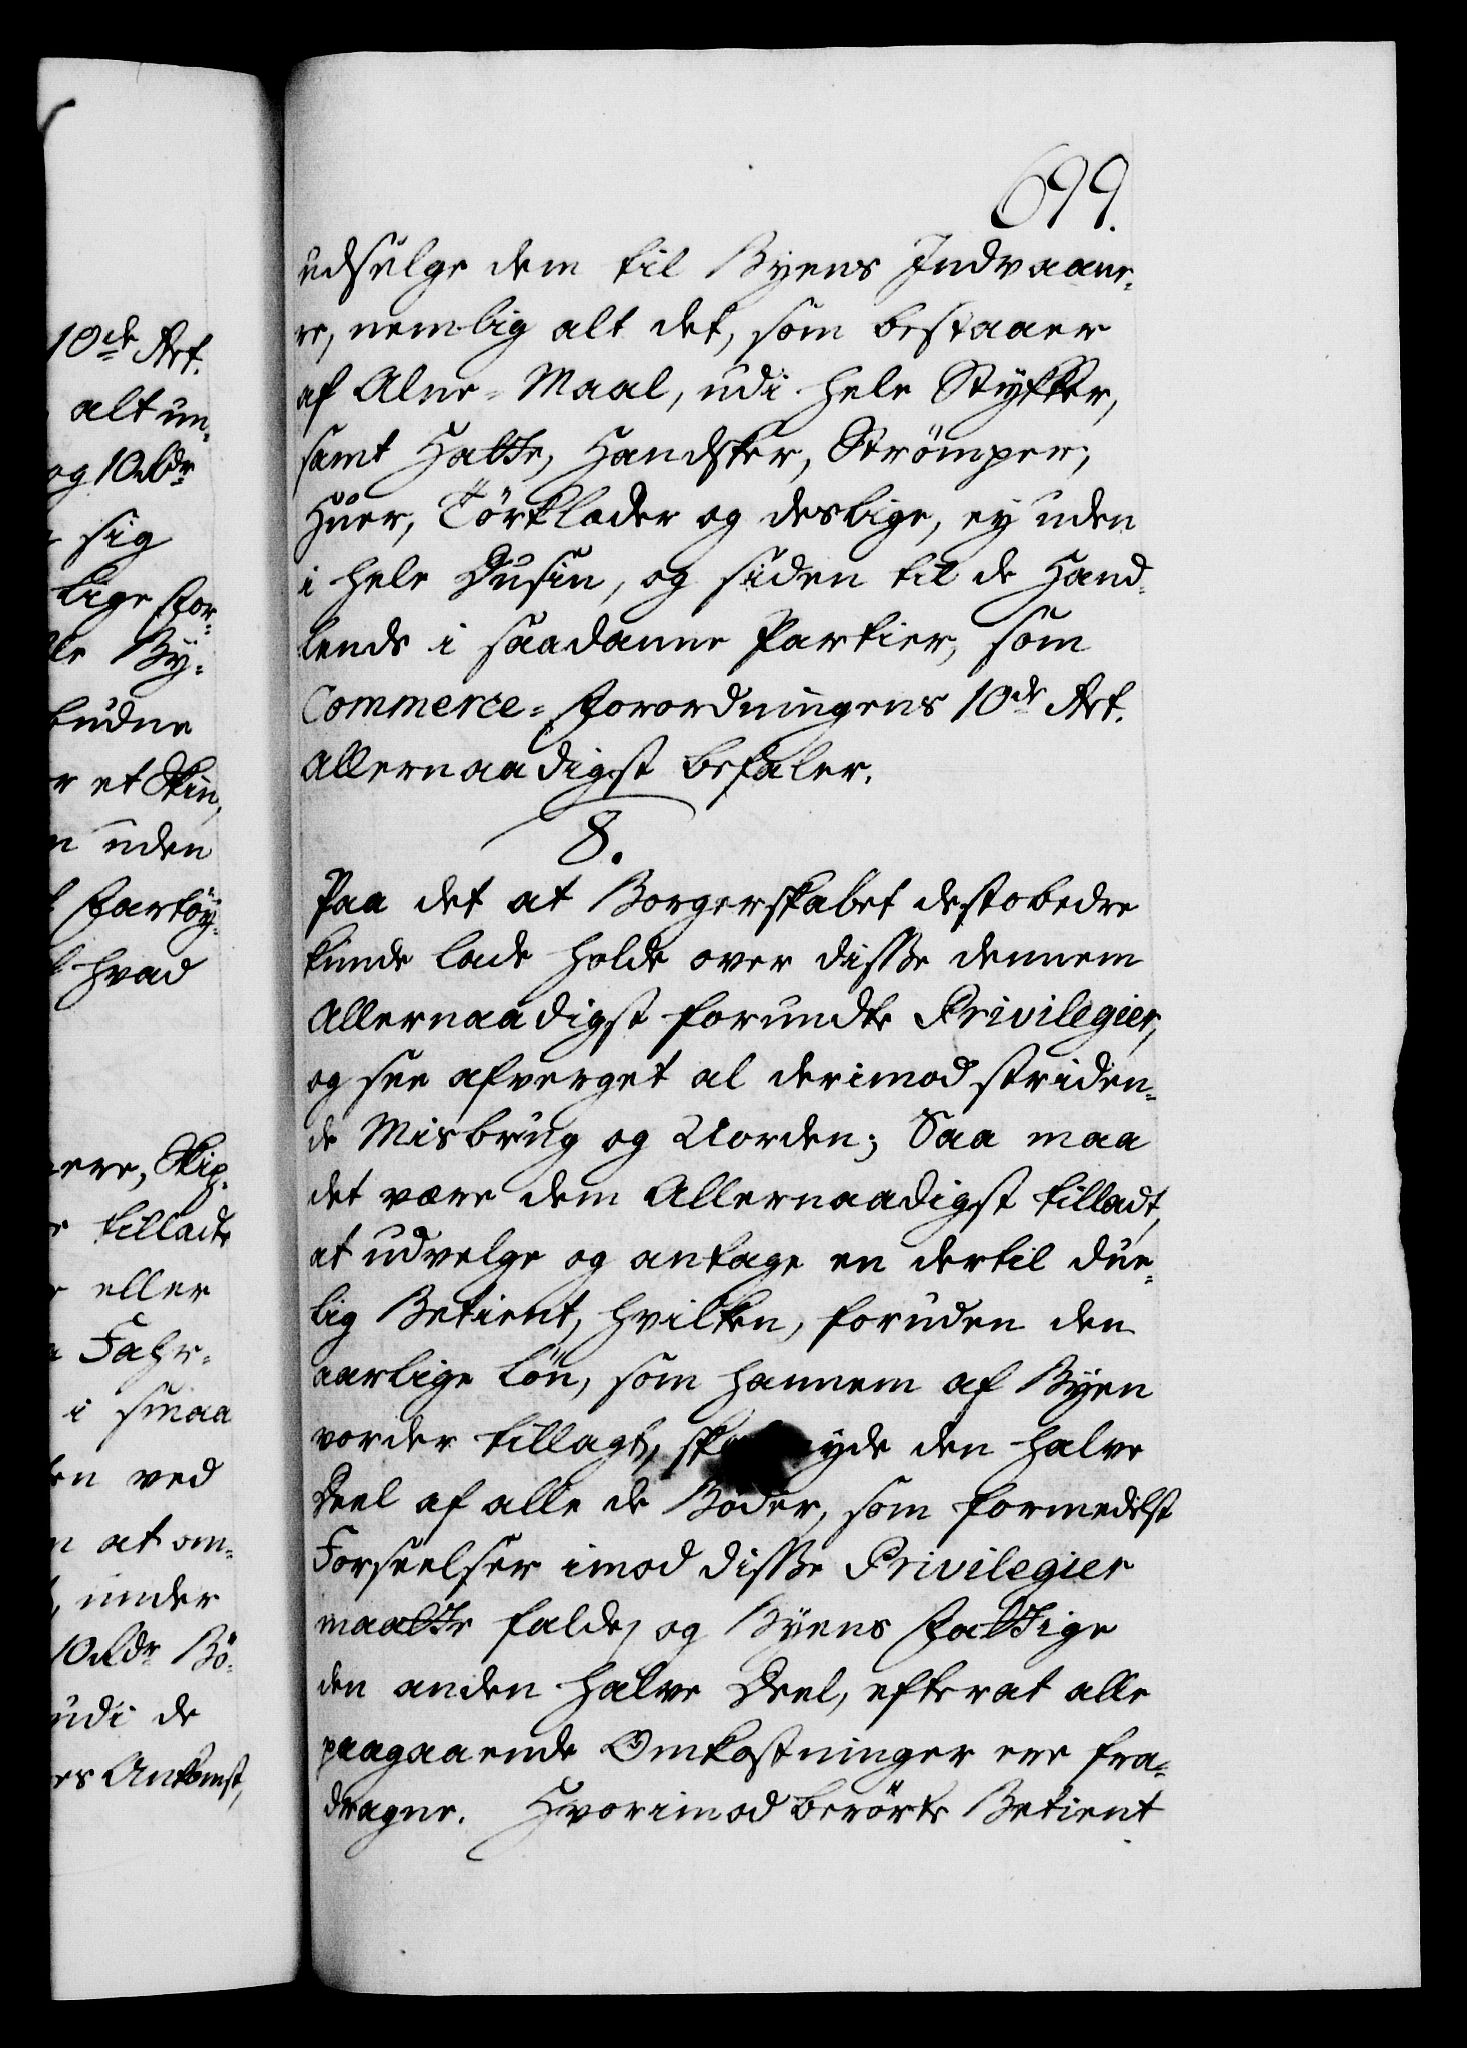 699.
udsælge dem til Byens Indvaane-
re, nemlig alt det, som bestaaer
af Alne-Maal, udi hele Stykker,
samt Hatte, Handsker, Strömper,
Huer, Törklæder og deslige, ey uden
i hele Dusin, og siden til de Hand-
lende i saadanne Partier, som
Commerce-Forordningens 10de Art.
allernaadigst befaler.
8.
Paa det at Borgerskabet destobedre
kunde lade holde over disse dennem
Allernaadigst forundte Privilegier,
og see afverget al derimod striden-
de Misbrug og Uorden; Saa maa
det være dem Allernaadigst tilladt,
at udvelge og antage en dertil due-
lig Betient, hvilken, foruden den
aarlige Lön, som hannem af Byen
vorder tillagt, skal nyde den halve
Deel af alle de Böder, som formedelst
Forseelser imod disse Privilegier
maatte falde, og Byens Fattige
den anden halve Deel, efterat alle
paagaaende Omkostninger ere fra-
dragne. Hvorimod berörte Betient
10de Art.
alt un-
og 10 Rdr
sig
lige For-
By-
budne
et Skin,
uden
Fartöy-
hvad
Skip-
tilladte
eller
Fahr-
i smaa
ved
at om-
under
10 Rdr Bö-
udi de
Ankomst,